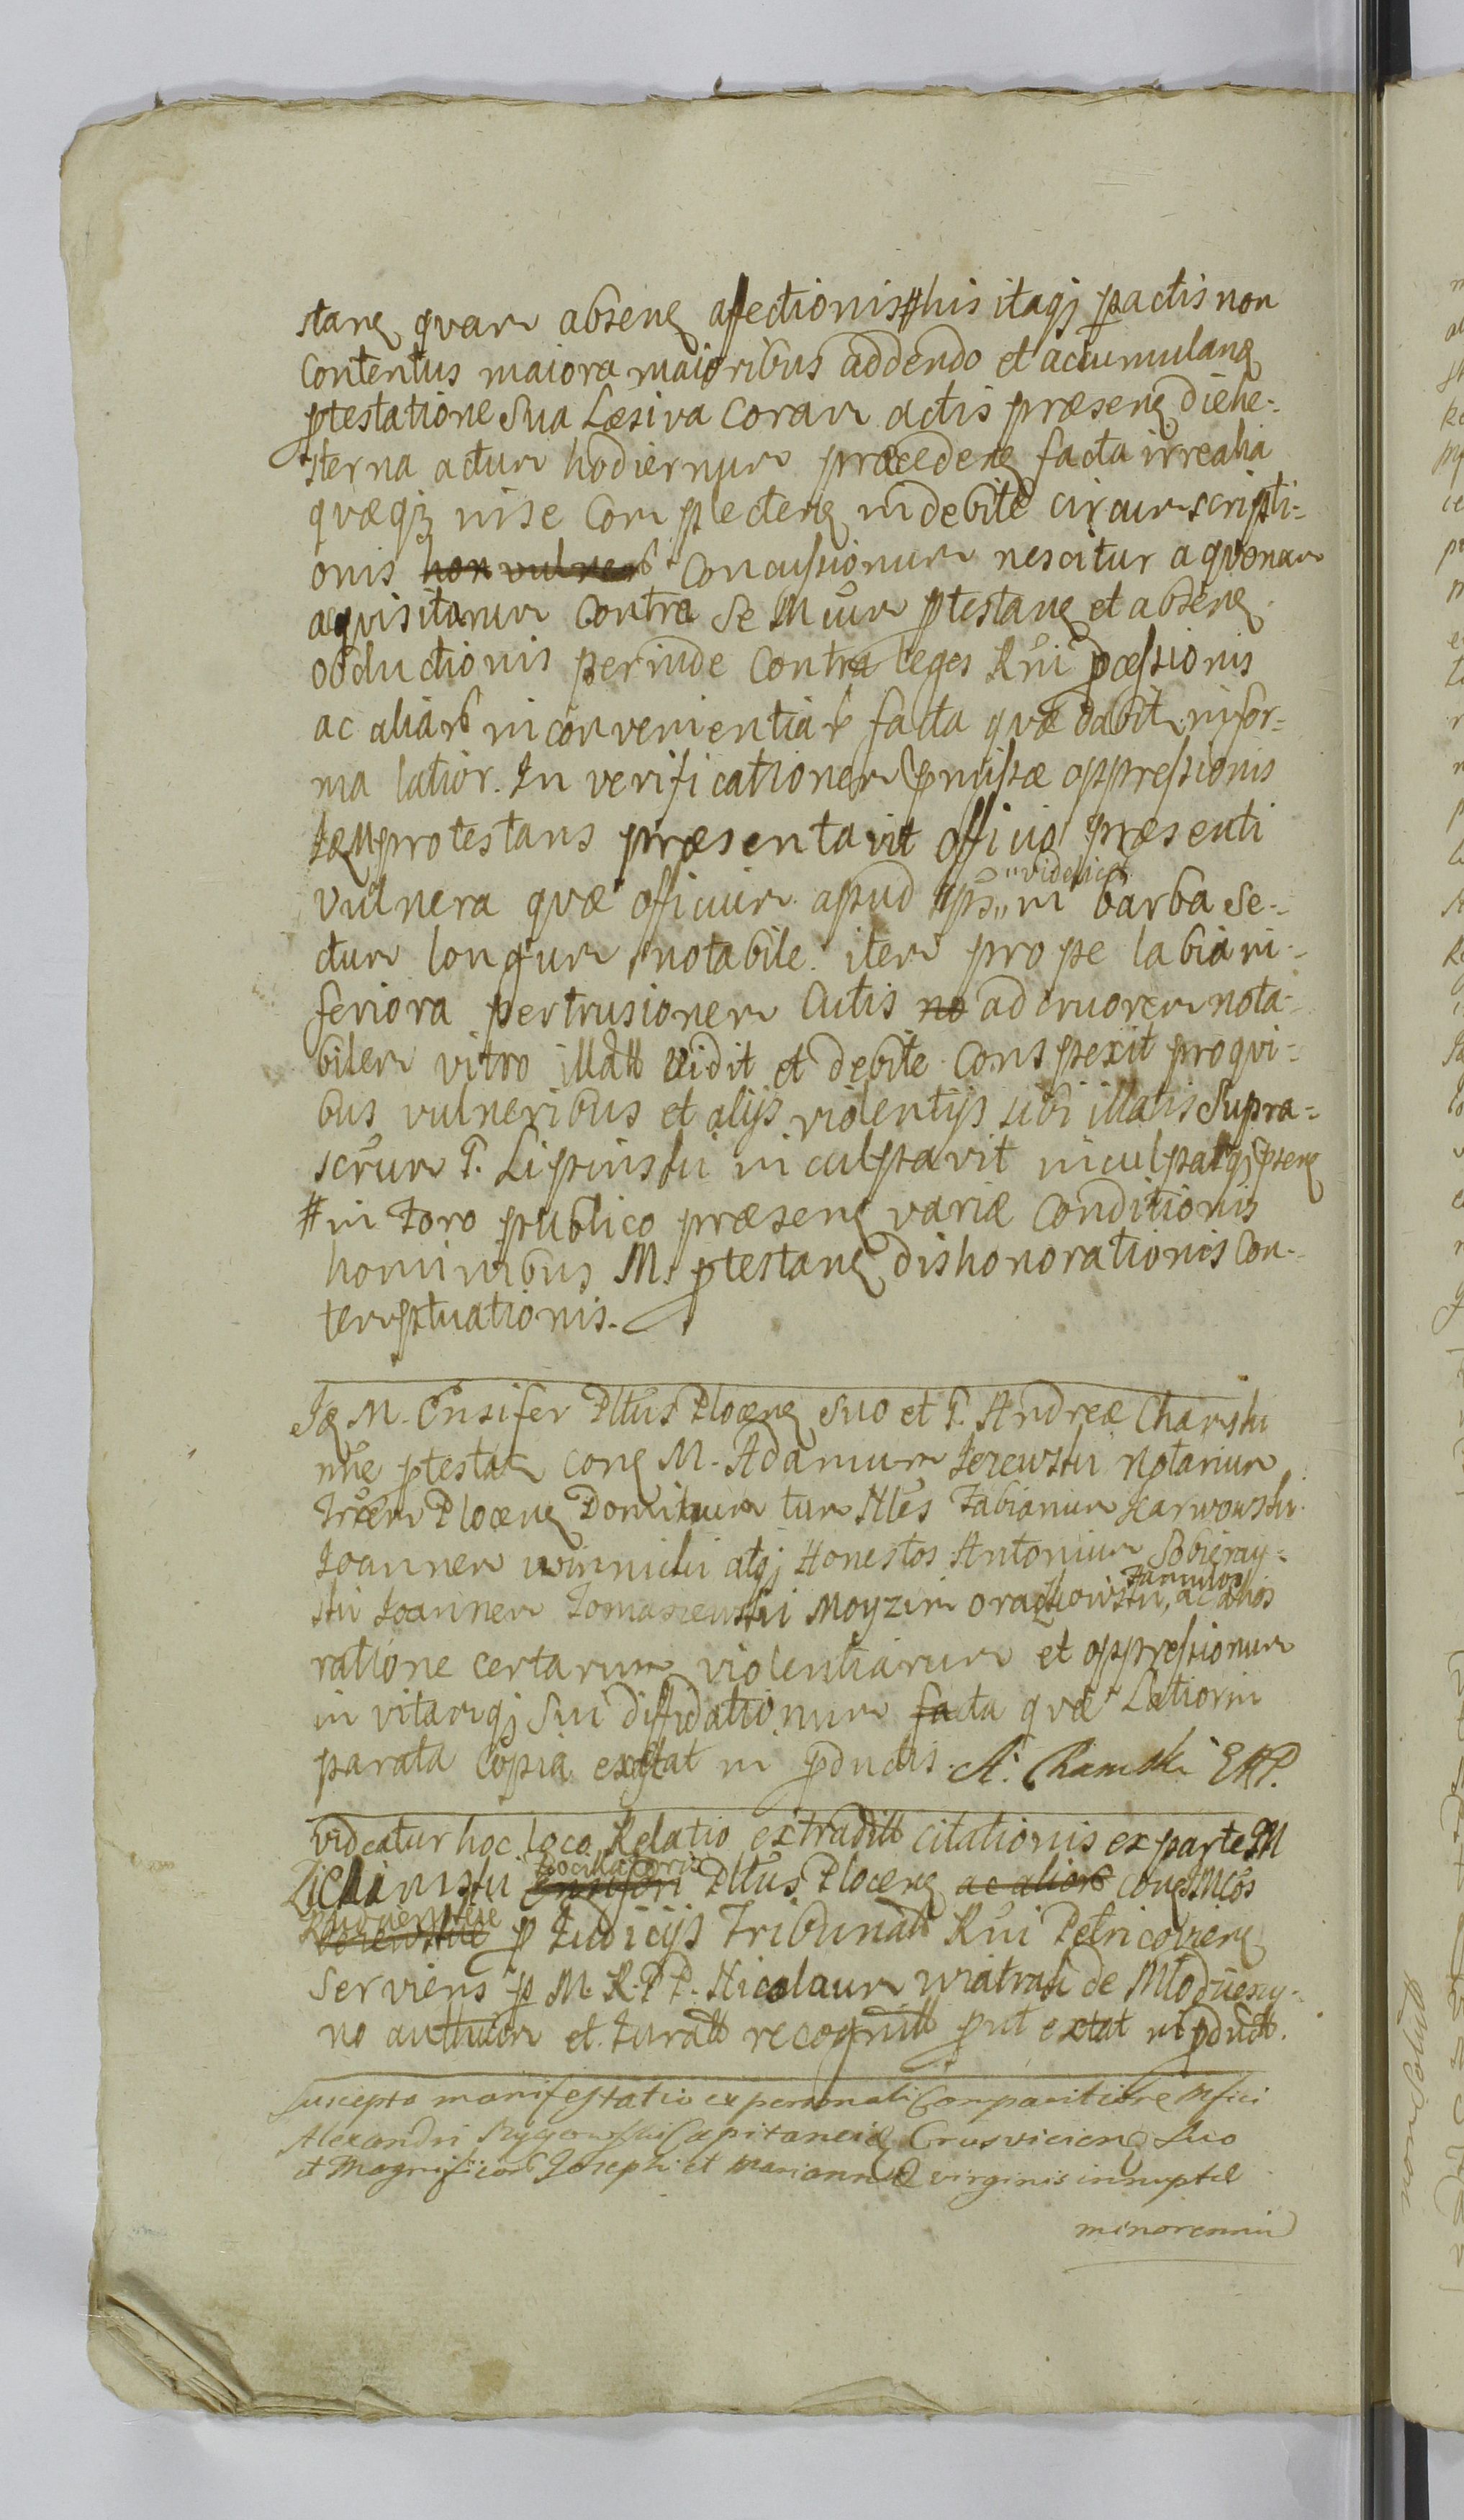 stan quam absen afectionis # his itaq pactis non
Contentus maiora maioribus addendo et accumulan
ptestatione Sua Læsiva Coram actis præsen die he-
sterna actum hodiernum præceden facta irrealia
quæq in se Complecten indebite circumscripti-
onis Concussionum nescitur a quonam
aquisitarum Contra Se M ptestan et absen
obductionis perinde Contra leges Rni pcessionis
ac aliar inconvenientiar facta quæ dabit infor-
ma latior. In verificationem pmissæ oppressionis
Idem protestans præsentavit officio præsenti
vulnera quæ officium apud ipsum videlicet in barba se-
ctum longum notabile. item prope labia in-
feriora pertrusionem Cutis no ad cruorem nota-
bilem vitro illatt vidit et debite Conspexit pro qui-
bus vulneribus et alijs violentijs sibi illatis Supra-
scrum G. Lipinski inculpavit inculpatq pten
# in Foro publico præsen variæ Conditionis
hominibus M. ptestan dishonorationis Con-
temptuationis.
Idem M. Ensifer Pltus Plocen Suo et G. Andreæ Chamski
nne ptestatr con M. Adamum Jezewski Notarium
Trrem Plocen Dominum tum Nles Fabianum Karwowski
Joannem Winnicki atq Honestos Antonium Sobieray-
ski Joannem Tomaszewski Moyzim Famulos ac alios
ratione certarum violentiarum et oppressionum
in vitamq Sui diffidationum facta quæ Latior in
parata copia extat in pductis. A. Chamski EPP.
videatur hoc loco Relatio extraditt citationis ex parte M
Zielinski Pocillatoris Ensiferi Pltus Plocen ac alior con Mcos
p Judicijs Tribunatt Rni Petricovien
Serviens p M. R. P P. Nicolaum Wiatrak de Młodzieszy-
no authum et Juratt recognitt put extat in pduct.
Suscepta manifestatio ex personali Comparitione Mfici
Alexandri Capitaneid Crusvicien Suo
et Magnificor Josephi et Mariannæ virginis innuptæ
minorennin